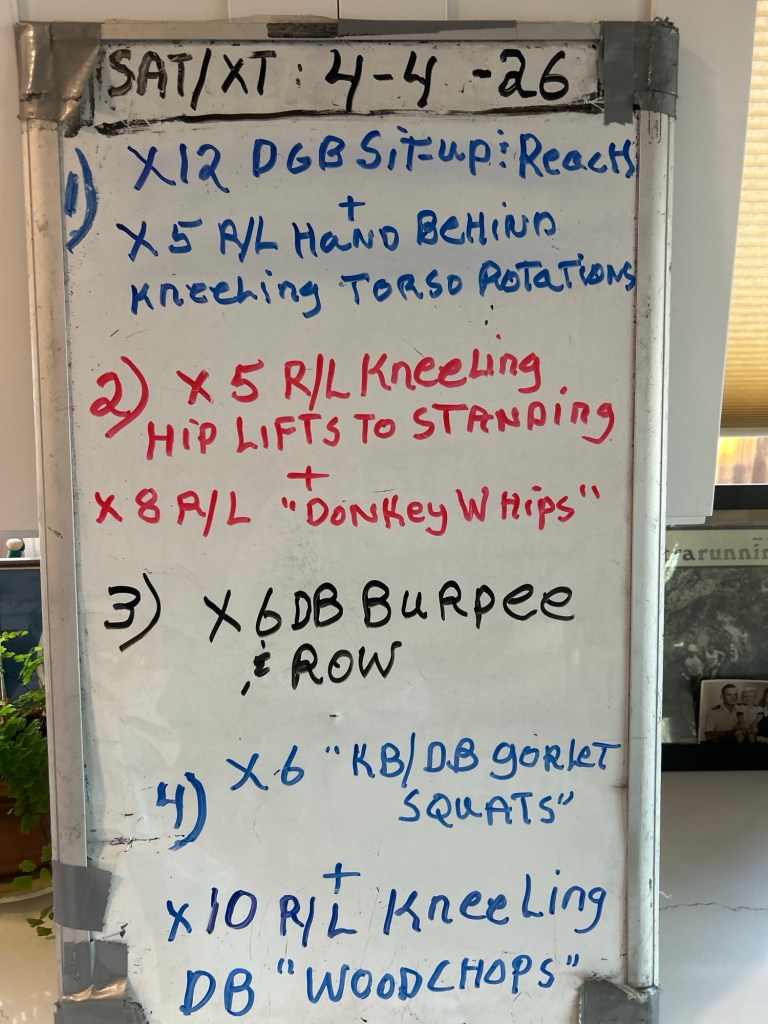 SAT/XT: 4-4-26
1) X12 DGB Sit-up & Reach
+
X5 R/L HAND BEHIND
Kneeling TORSO ROTATIONS
2) X 5 R/L Kneeling
HIP LIFTS TO STANDING
+
X 8 R/L "DONKEY WHIPS"
3) X 6 DB BURPEE
& ROW
4) X 6 "KB/DB GORLET
SQUATS"
+
X10 R/L Kneeling
DB "WOODCHOPS"
arunnin